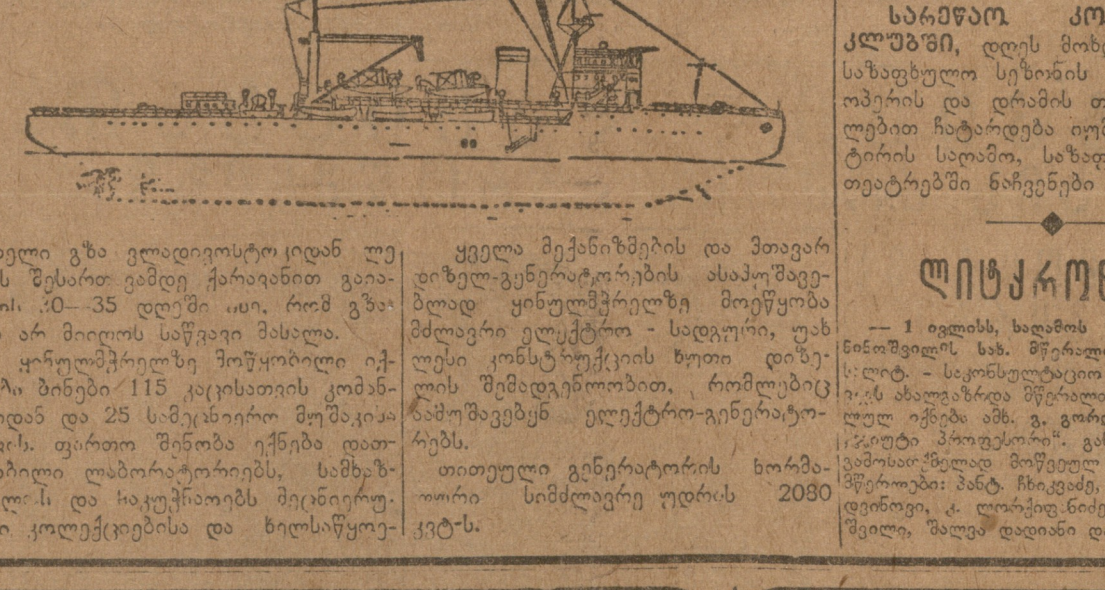 გზა ვლადივოსტოკიდან ლე
შესართავამდე ქარავანით გაია-
30—35 დღეში ისე, რომ გზა
არ მიიღოს საწვავი მასალა.
ყინულმჭრელზე მოწყობილი იქ-
ბინები 115 კაცისათვის კომან-
და 25 სამეცნიერო მუშაკისა
ფართო შენობა ექნება დათ-
ლაბორატორიებს, სამხაზ-
და საკუჭნაოებს მეცნიერუ-
კოლექციებისა და ხელსაწყოე-
ყველა მექანიზმების და მთავარ
დიზელ-გენერატორების ასამუშავე-
ბლად ყინულმჭრელზე მოეწყობა
მძლავრი ელექტრო - სადგური, უახ
ლესი კონსტრუქციის ხუთი დიზე-
ლის შემადგენლობით, რომლებიც
აამუშავებენ ელექტრო-გენერატო-
რებს.
თითეული გენერატორის ნორმა-
ლური სიმძლავრე უდრის 2080
კვტ-ს.
სარეწაო კო
კლუბში, დღეს
საზაფხულო სეზონის
ოპერის და დრამის
ლებით ჩატარდება
ტირის საღამო,
თეატრებში ნაჩვენები
ლიტკრო
— 1 ივლისს, საღამოს
ნინოშვილის სახ.
სალიტ. - საკონსულტაციო
ახალგაზრდა
ლულ იქნება ამხ. გ.
პროფესორი".
გამოსათქმელად მოწვეულ
მწერლები: პანტ. ჩხიკვაძე,
შვილი, შალვა დადიანი